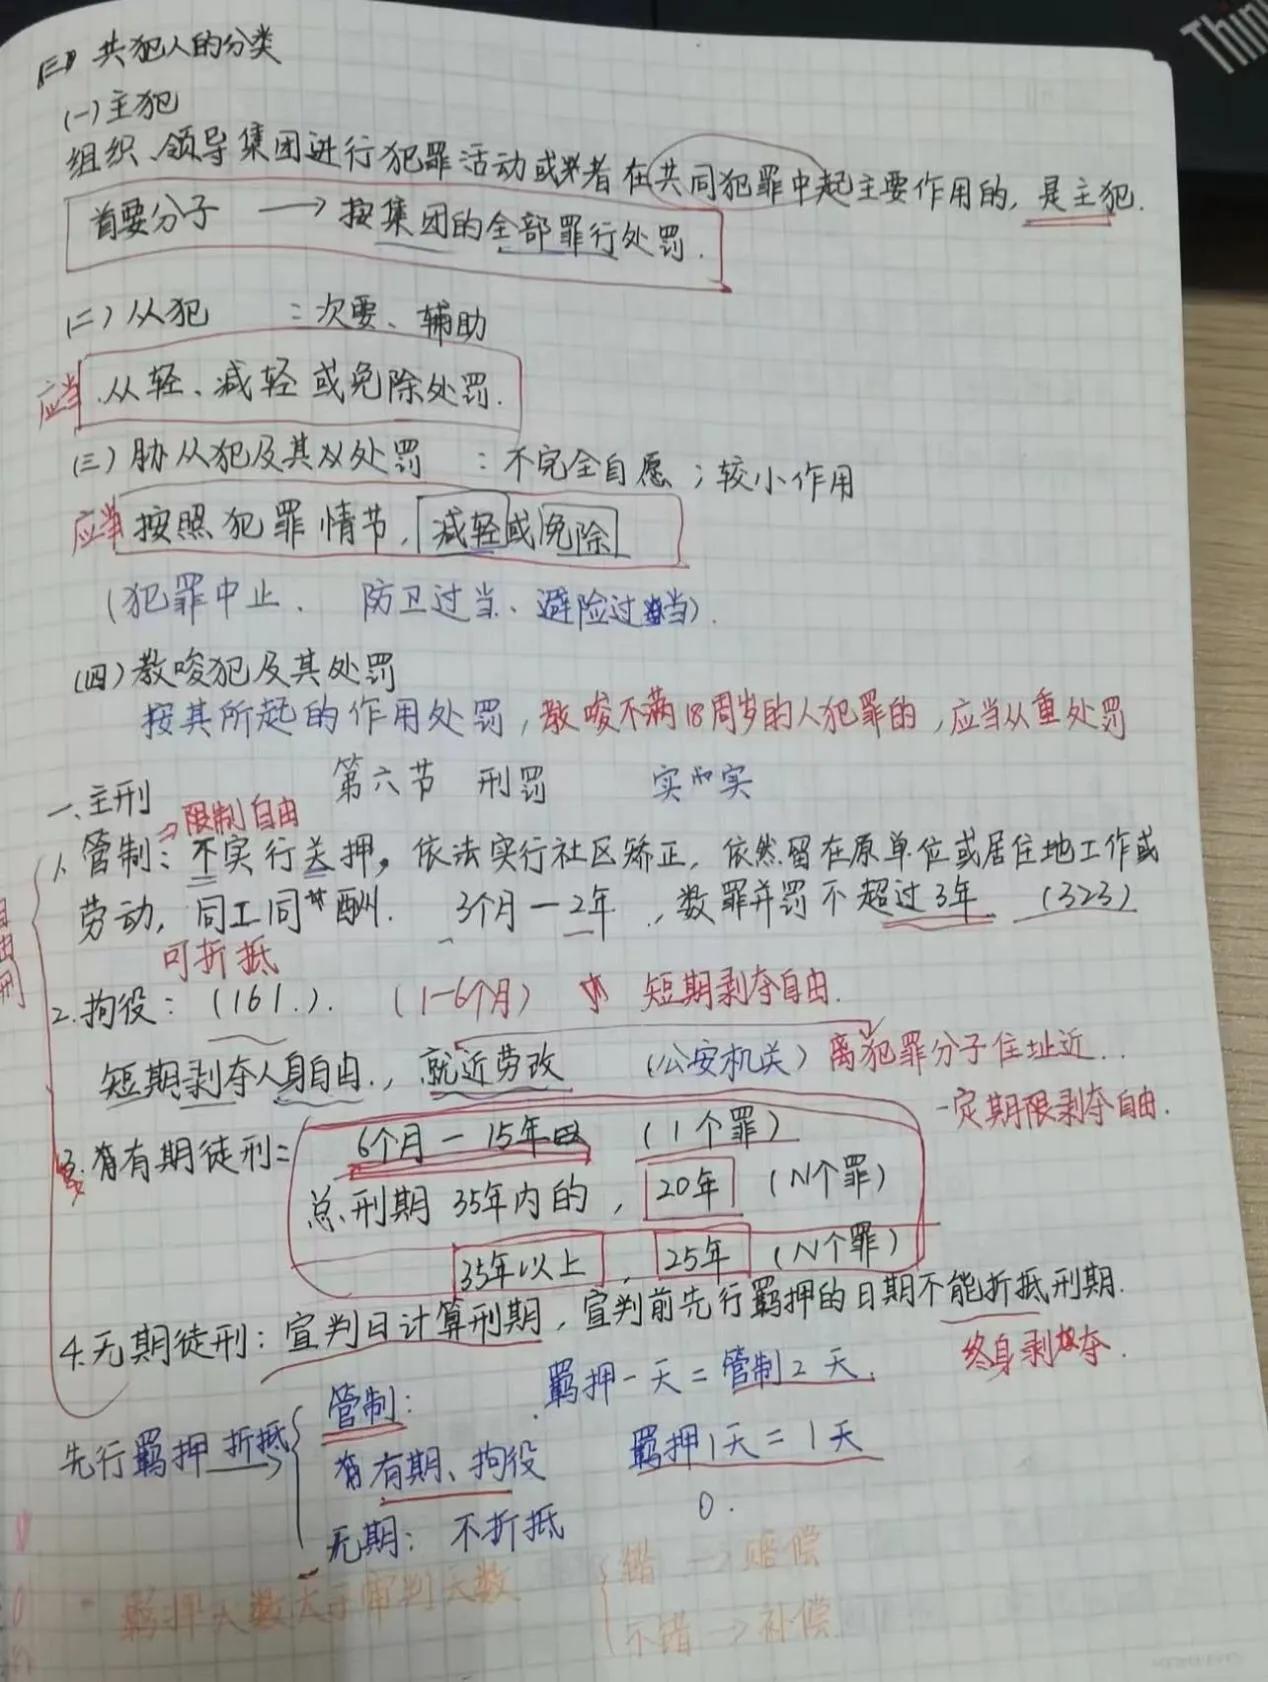 共犯人的分类
(一)主犯
组织、领导集团进行犯罪活动或者在共同犯罪中起主要作用的,是主犯.
首要分子 → 按集团的全部罪行处罚.
(二)从犯 :次要、辅助
应当 从轻、减轻或免除处罚.
(三)胁从犯及其处罚 :不完全自愿;较小作用
应当 按照犯罪情节,减轻或免除
(犯罪中止、 防卫过当、避险过当).
(四)教唆犯及其处罚
按其所起的作用处罚,教唆不满18周岁的人犯罪的,应当从重处罚
第六节 刑罚
一、主刑
⇒限制自由
1、管制:不实行关押,依法实行社区矫正,依然留在原单位或居住地工作或
劳动,同工同酬. 3个月一2年,数罪并罚不超过3年 (323)
自由刑
可折抵
2.拘役:(161.). (1-6个月) 短期剥夺自由.
短期剥夺人身自由.,就近劳改 (公安机关)离犯罪分子住址近...
一定期限剥夺自由.
3.有期徒刑= 6个月一15年 (1个罪)
总刑期35年内的,20年 (N个罪)
35年以上,25年 (N个罪)
4.无期徒刑:宣判日计算刑期,宣判前先行羁押的日期不能折抵刑期.
终身剥夺.
先行羁押 折抵→
管制: 羁押一天=管制2天.
有期、拘役 羁押1天=1天
无期:不折抵 0.
羁押天数大于审判天数
错→赔偿
不错→补偿
Thin